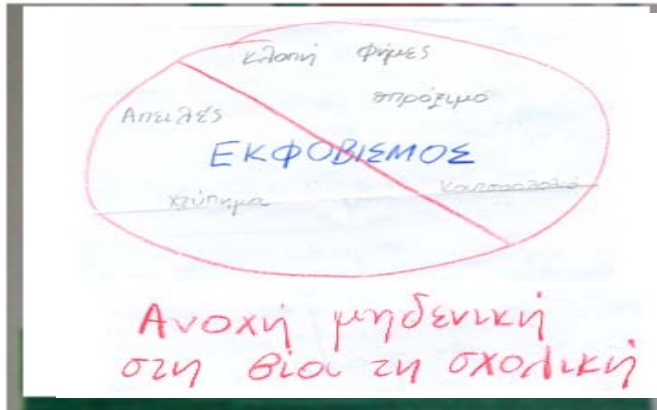 κλοπή φήμες
σπρόξιμο
Απειλές
ΕΚΦΟΒΙΣΜΟΣ
χτύπημα
Ανοχή μηδενική
στη βία τη σχολική